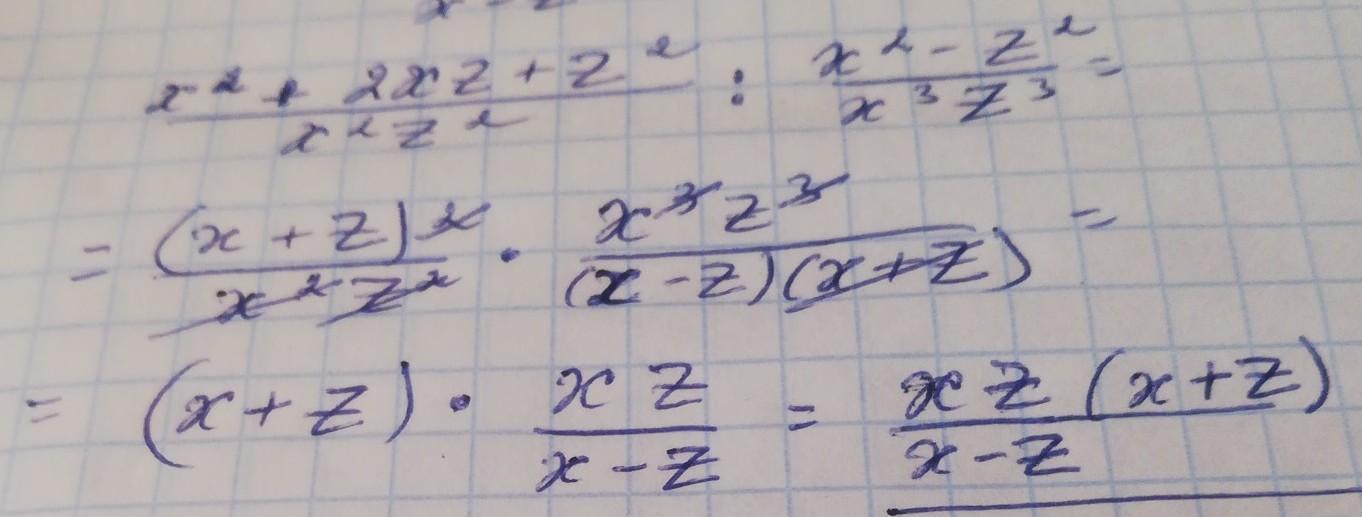 x² + 2xz + z² / x²z² : x² - z² / x³z³ =
= (x + z)² / x²z² · x³z³ / (x - z)(x + z) =
= (x + z) · xz / x - z = xz(x + z) / x - z